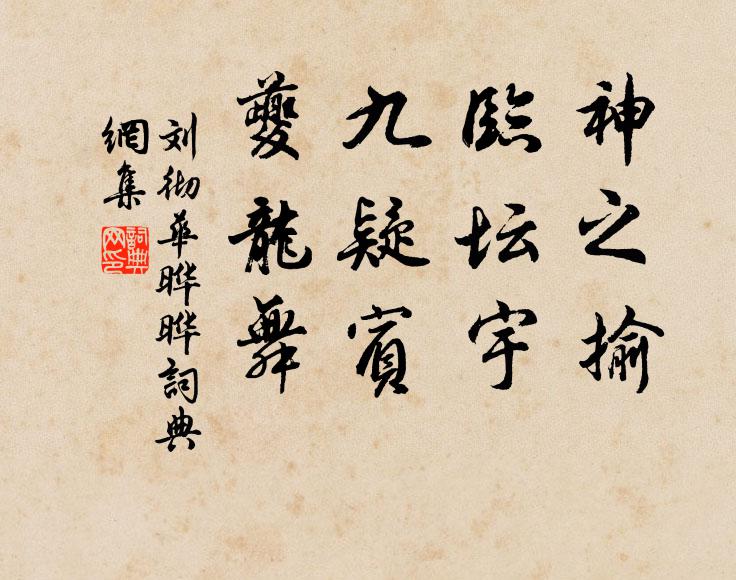 神之揄
臨坛宇
九疑賓
夔龍舞
刘彻华晔晔詞典
網集
詞典
网印